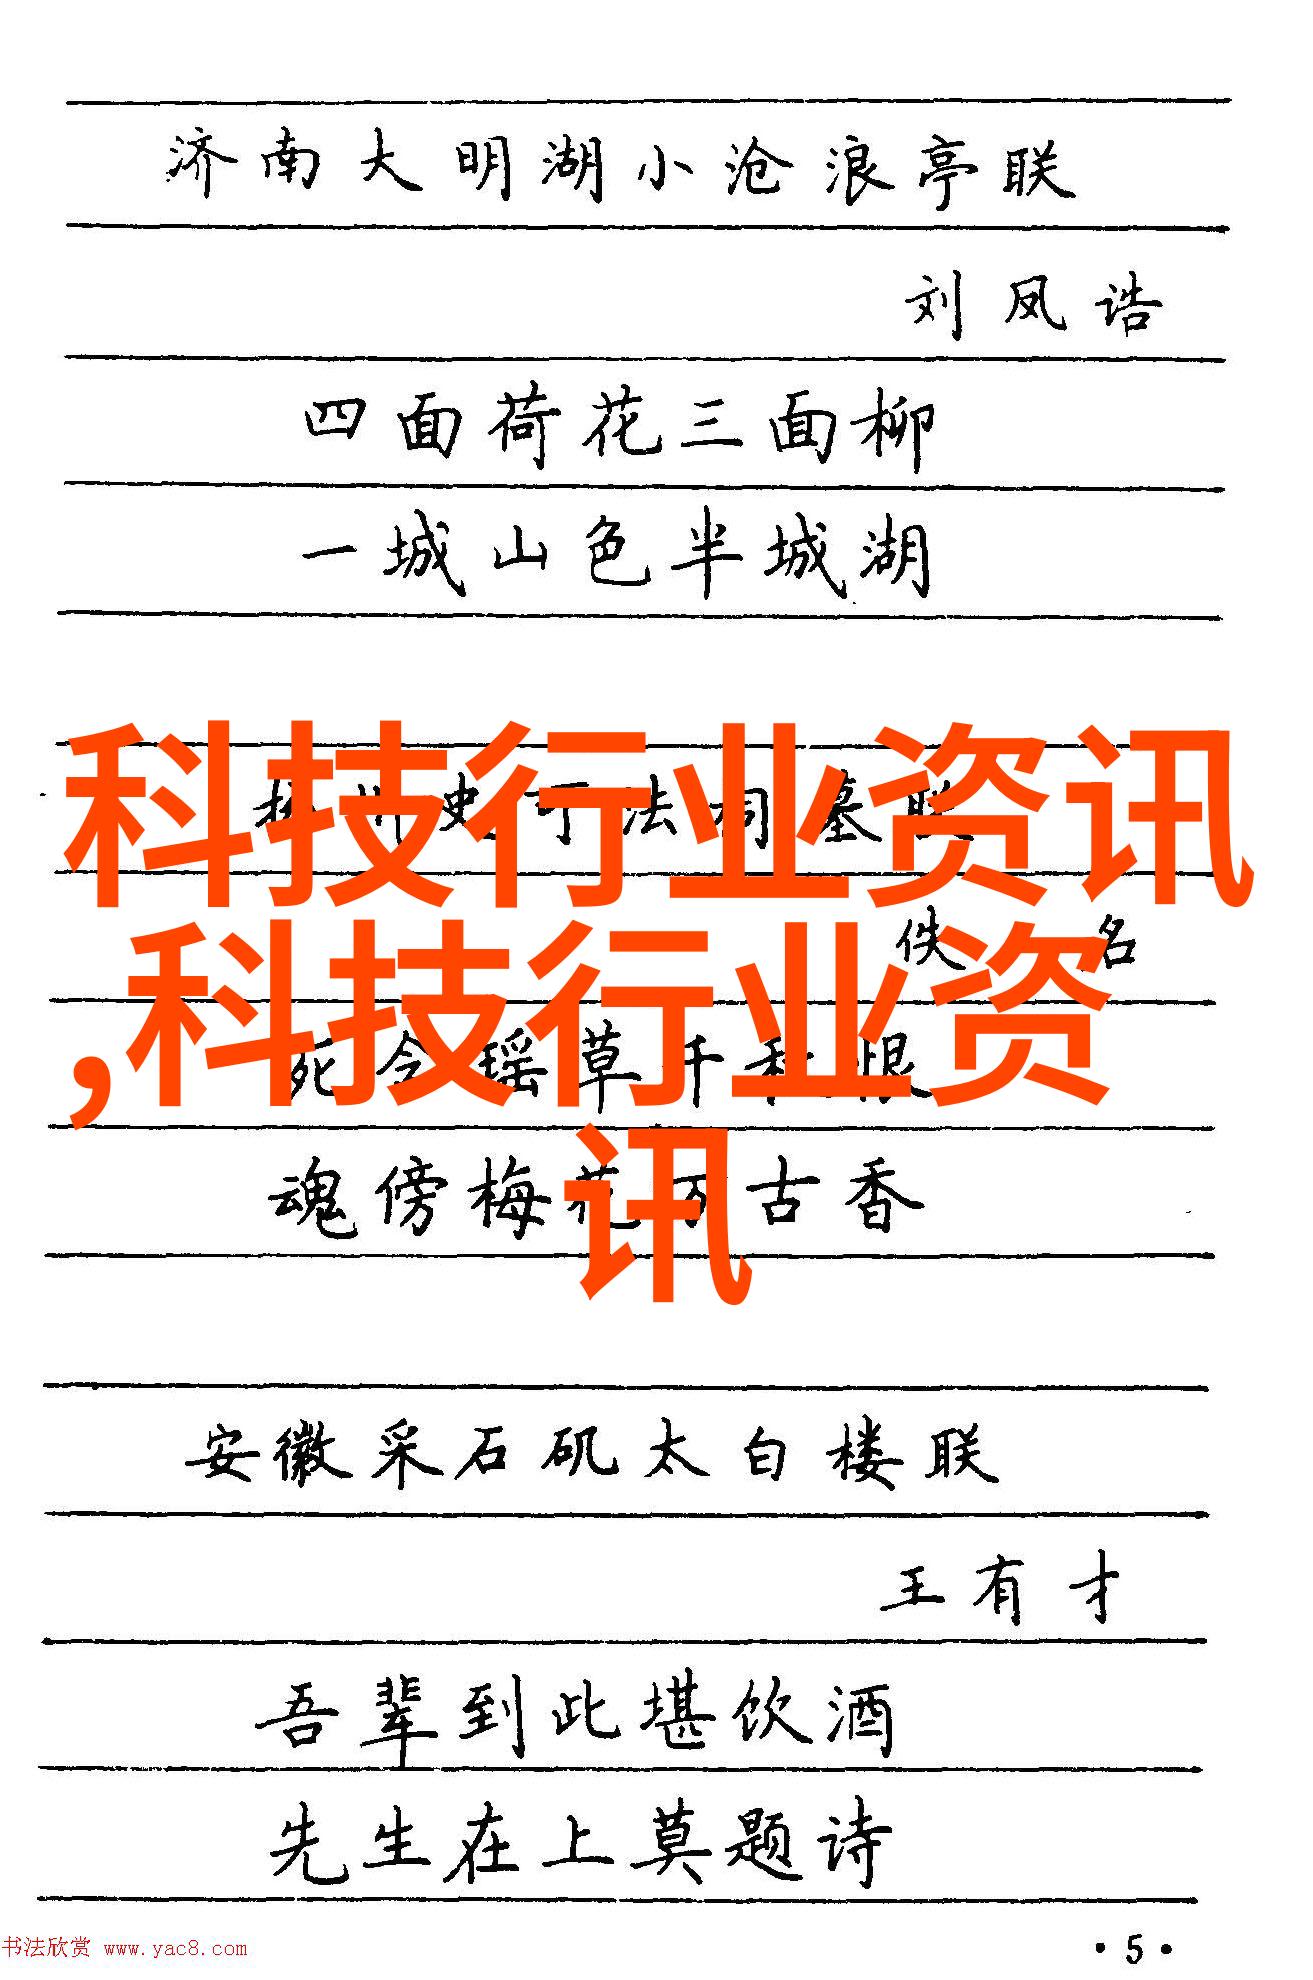 济南大明湖小沧浪亭联
刘凤诰
四面荷花三面柳
一城山色半城湖
科技行业资讯
史可法祠墓联
佚名
,科技行业资
死 瑶草千 恨
魂傍梅花万古香
讯
安徽采石矶太白楼联
王有才
吾辈到此堪饮酒
先生在上莫题诗
书法欣赏 www.yac8.com
·5·